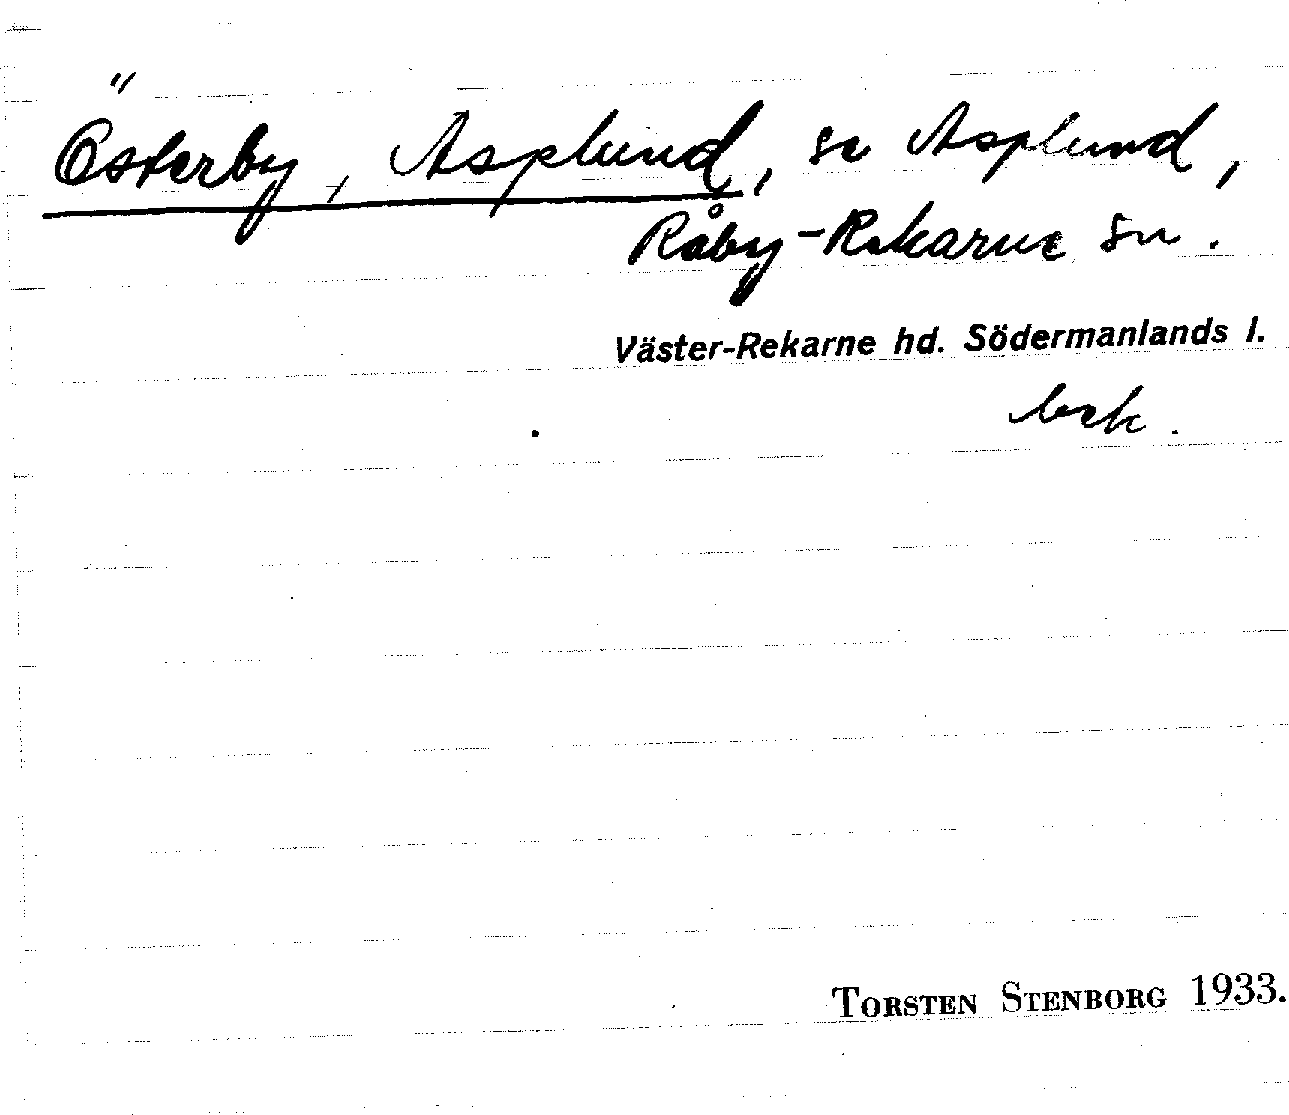 Österby, Asplund, se Asplund,
Råby-Rekarne sn.
Väster-Rekarne hd. Södermanlands l.
bek.
TORSTEN STENBORG 1933.